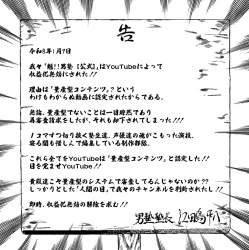 告
令和8年1月7日
我々「魁!!男塾【公式】」はYouTubeによって
収益化無効にされた!!
理由は「量産型コンテンツ」?という
わけもわからぬ動画に認定されたからである。
無論、量産型でないことは一目瞭然であり
再審査請求をしたが、それも却下されてしまった!!
ノコマずつ切り抜く塾生達、声優達の魂がこもった演技、
寝る間も惜しんで編集している制作部隊、
これら全てをYouTubeは「量産型コンテンツ」と認定した!!
目を覚ませYouTube!!
貴殿達こそ量産型のシステムで審査してるんじゃないのか??
しっかりとした「人間の目」で我々のチャンネルを判断されたし!!
即時、収益化無効の解除を求む!!
男塾塾長 江田島平八